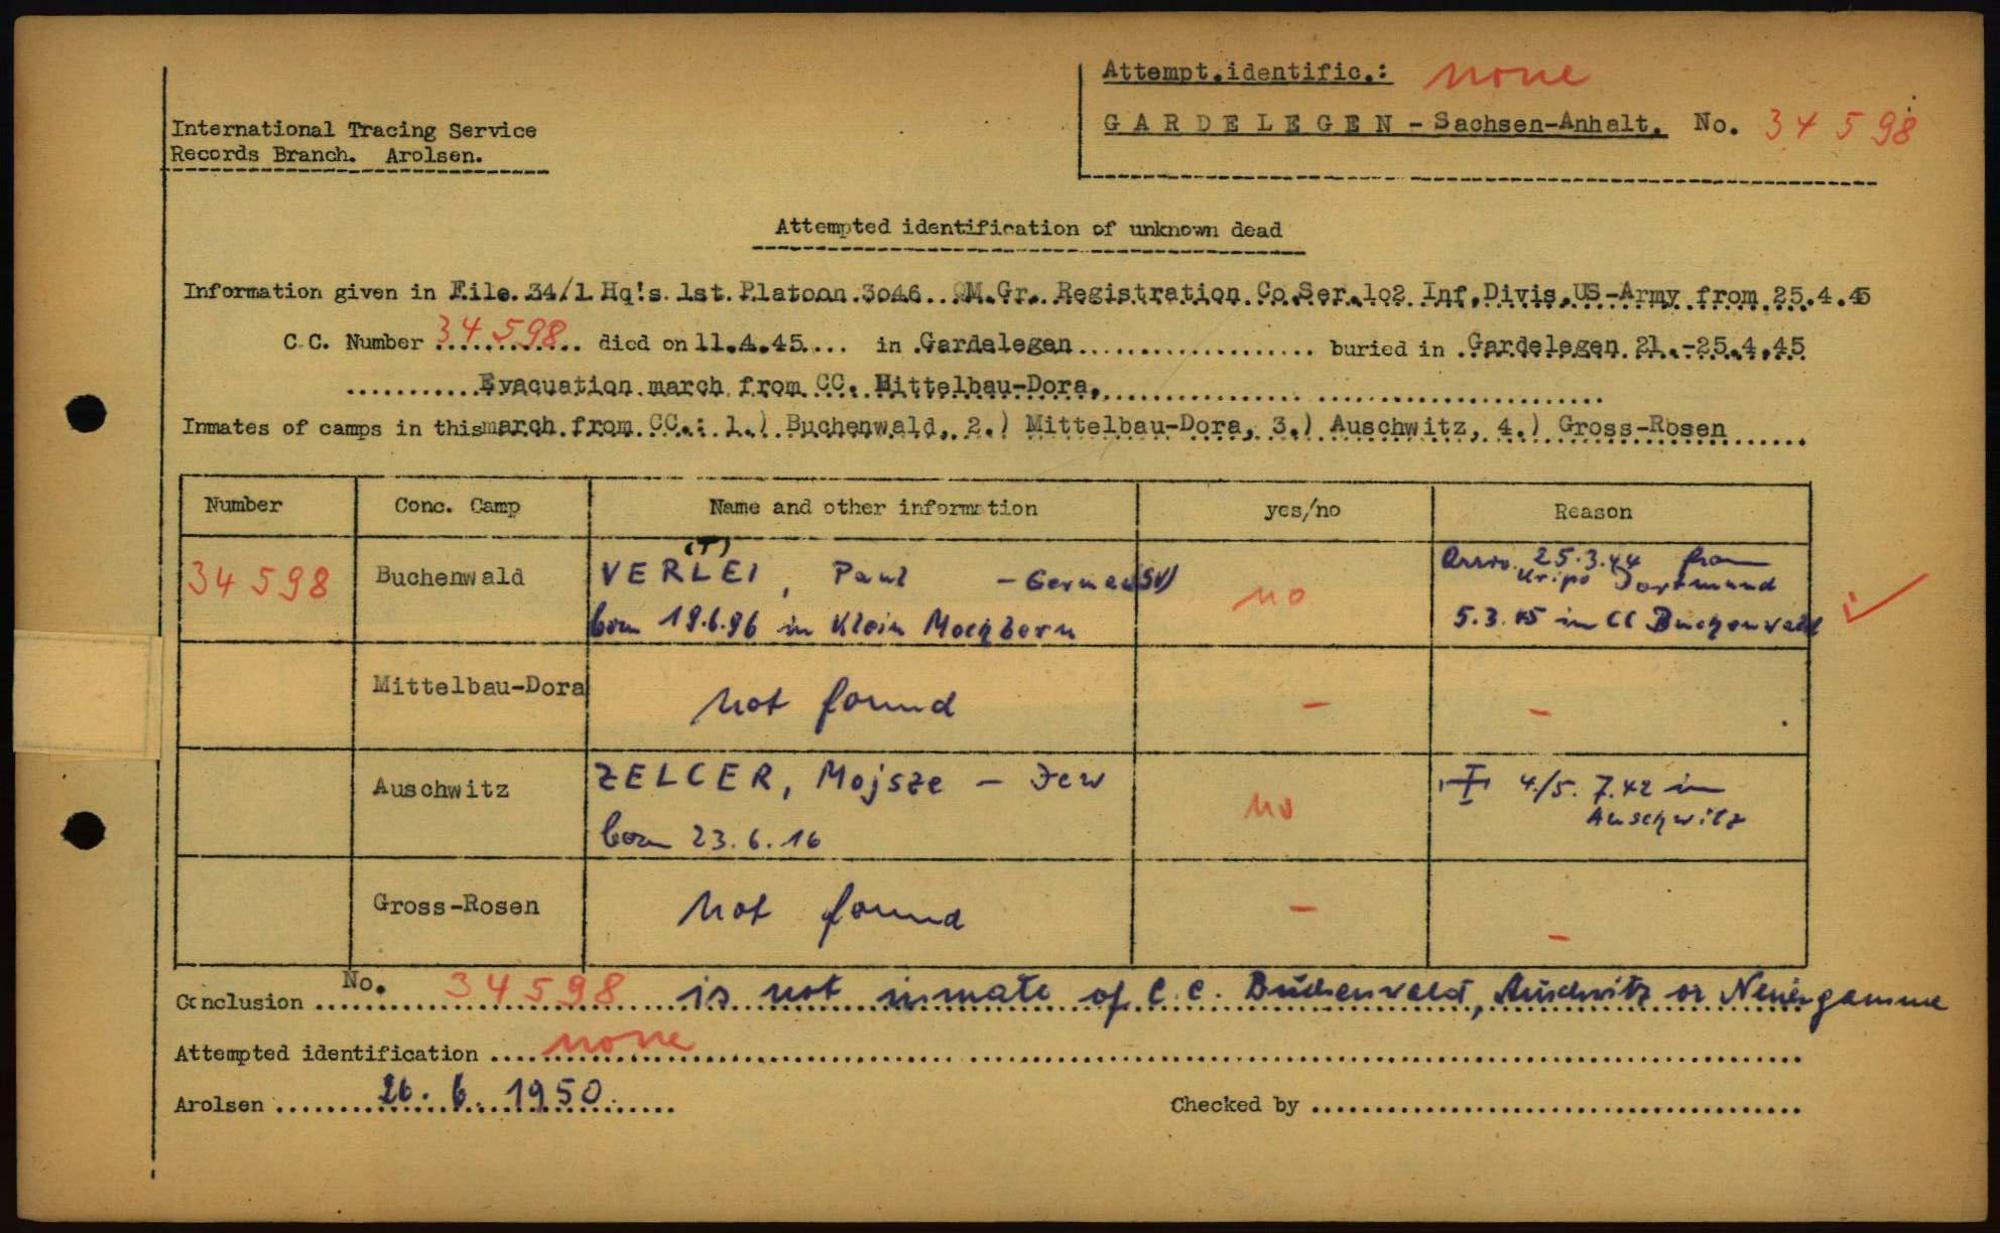 Attempt.identific.: none
GARDELEGEN - Sachsen-Anhalt. No. 34598
International Tracing Service
Records Branch. Arolsen.
Attempted identification of unknown dead
Information given in File.34/1 Hq's.1st.Platoon.3046..QM.Gr..Registration.Co.Ser.102 Inf.Divis.US-Army from 25.4.45
C.C. Number 34598 died on 11.4.45.... in Gardelegen buried in Gardelegen 21.-25.4.45
Evacuation march from CC. Mittelbau-Dora.
Inmates of camps in this march from CC.: 1.) Buchenwald, 2.) Mittelbau-Dora, 3.) Auschwitz, 4.) Gross-Rosen
Number Conc. Camp Name and other information yes/no Reason
34598 Buchenwald VERLEI (T), Paul - German (SV) no Arriv. 25.3.44 from
Kripo Dortmund
born 19.6.96 in Klein Mochbern 5.3.45 in CC Buchenwald
Mittelbau-Dora not found - -
Auschwitz ZELCER, Mojsze - Jew no 4./5. 7.42 in
Auschwitz
born 23.6.16
Gross-Rosen not found - -
Conclusion No. 34598 is not inmate of C.C. Buchenwald, Auschwitz or Neuengamme
Attempted identification none
Arolsen 26. 6. 1950. Checked by